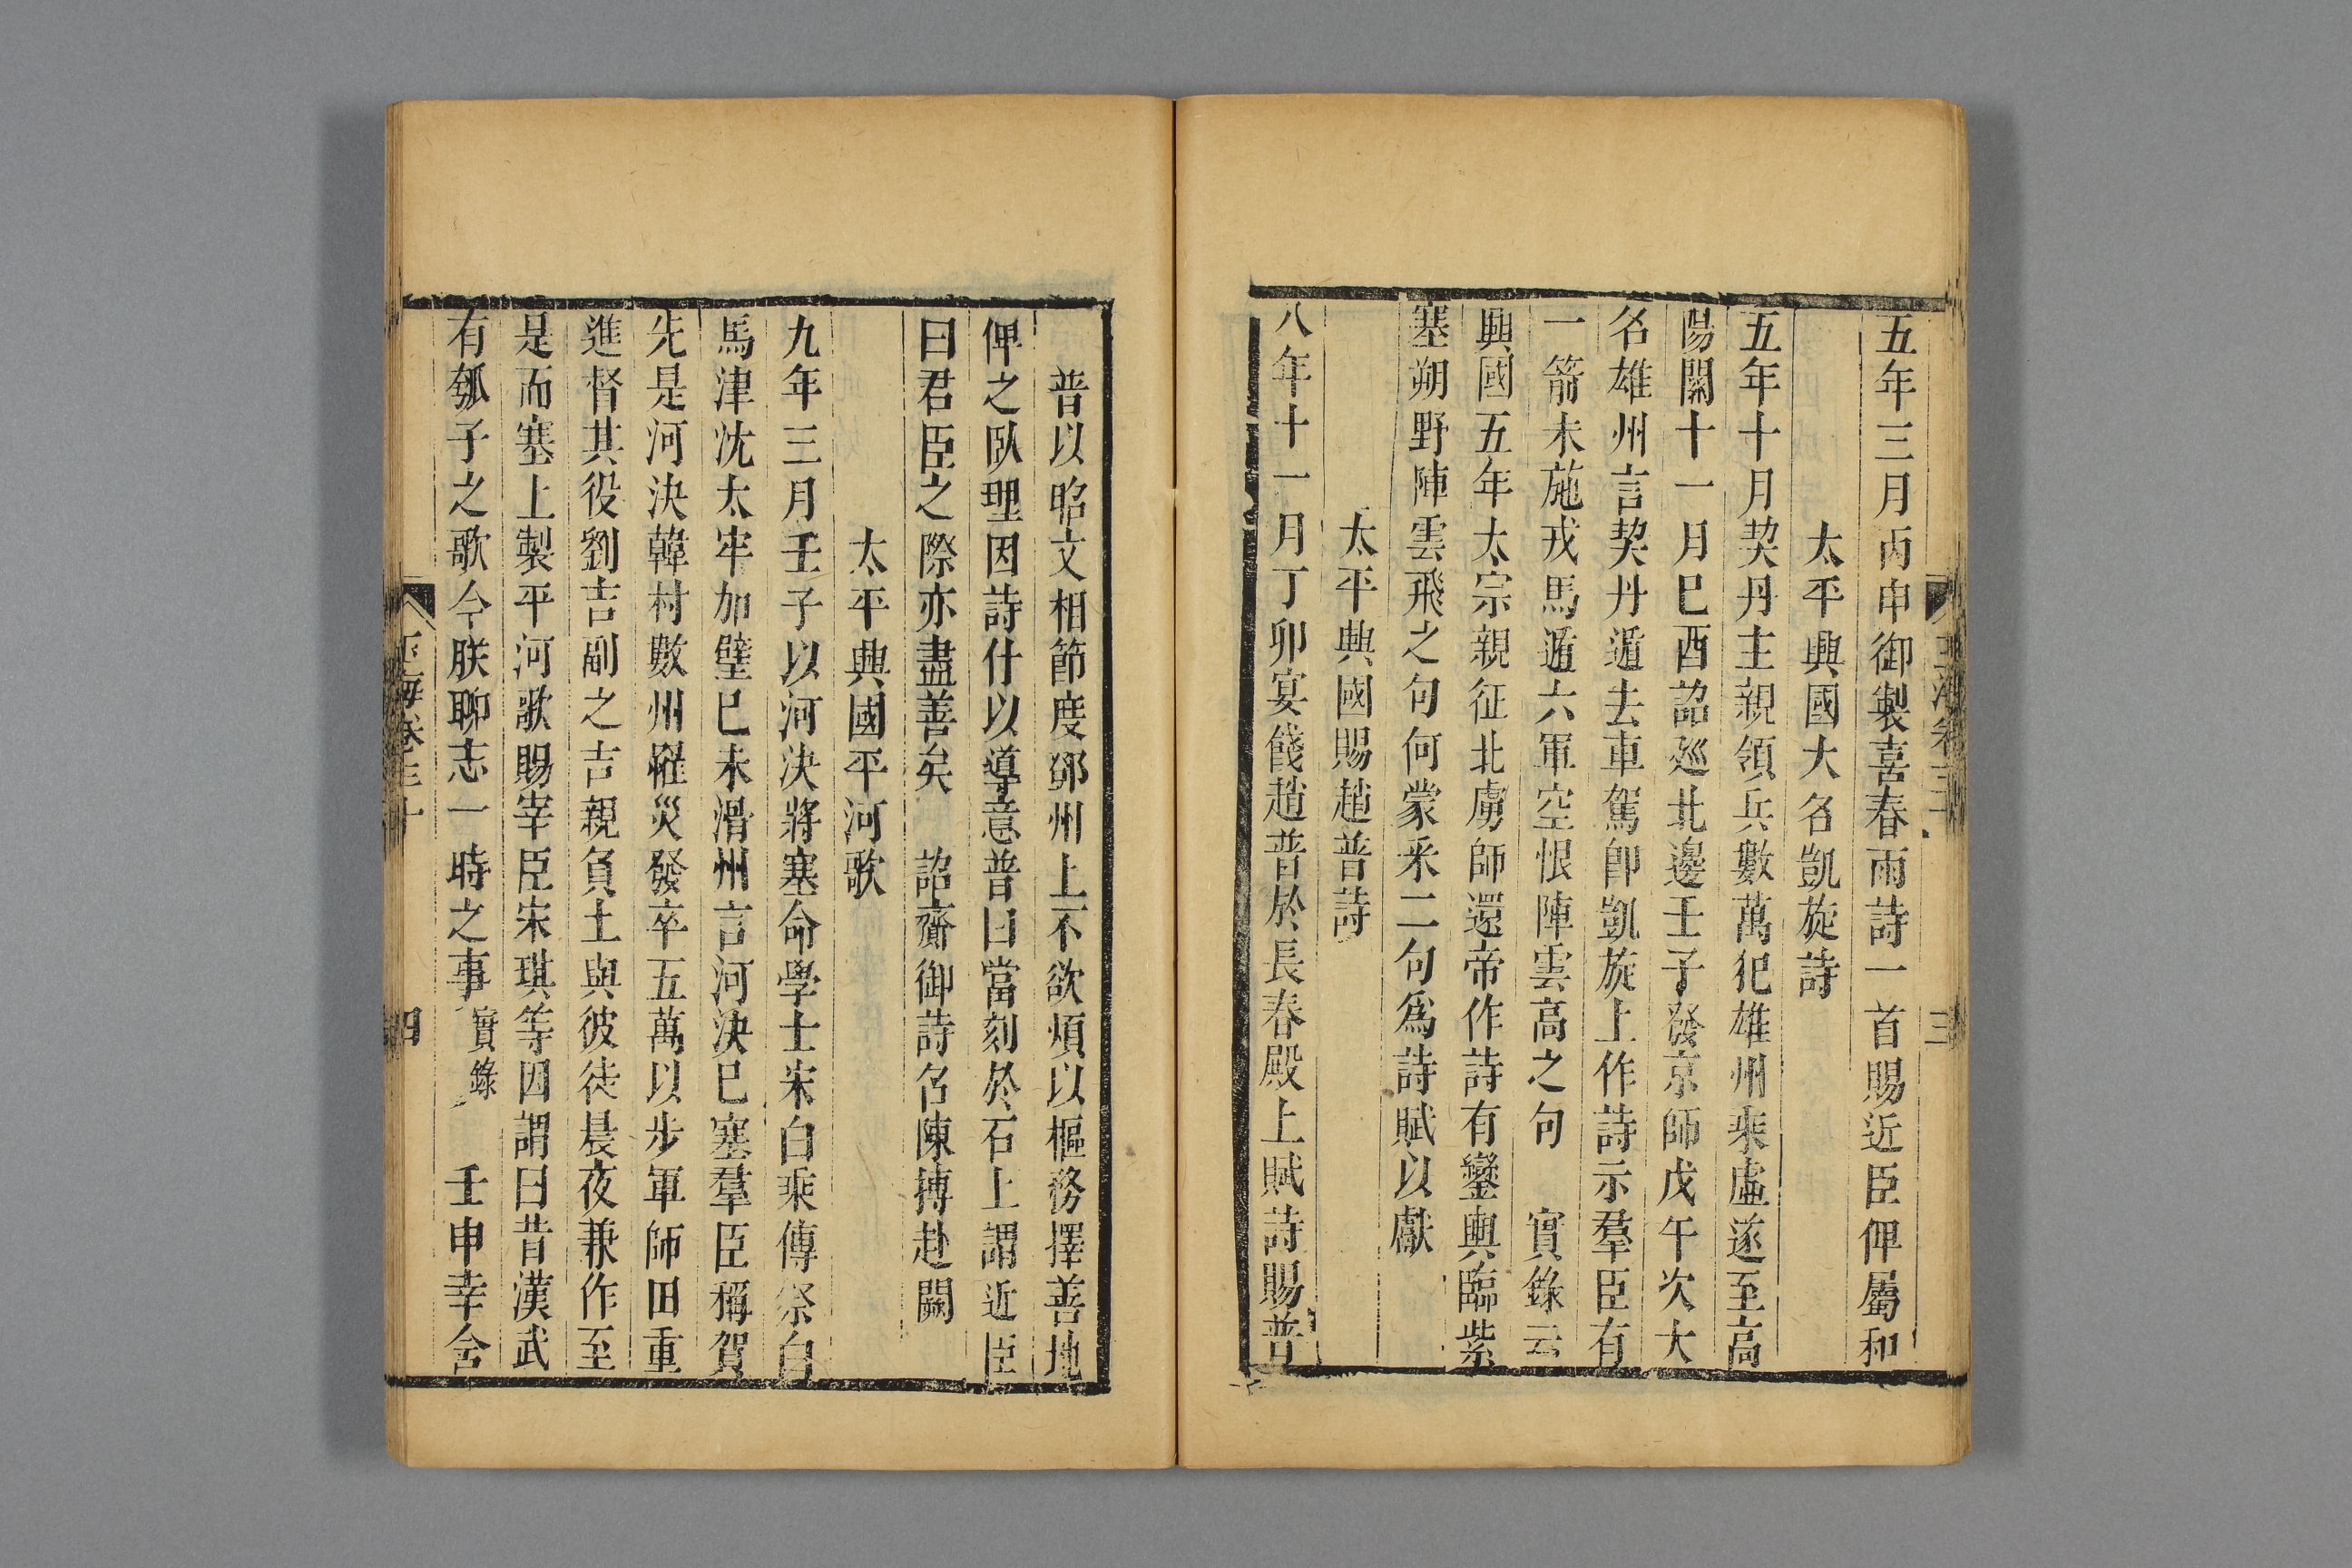 五年三月丙申御製喜春雨詩一首賜近臣俾屬和
太平興國大名凱旋詩
五年十月契丹主親領兵數萬犯雄州乘虛遂至高
陽關十一月巳酉詔廵北邊壬子發京師戊午次大
名雄州言契丹遁去車駕卽凱旋上作詩示羣臣有
一箭未施戎馬遁六軍空恨陣雲高之句　實錄云
興國五年太宗親征北虜師還帝作詩有鑾輿臨紫
塞朔野陣雲飛之句何蒙釆二句爲詩賦以獻
太平興國賜趙普詩
八年十一月丁卯宴餞趙普於長春殿上賦詩賜普
普以昭文相節度鄧州上不欲煩以樞務擇善地
俾之臥理因詩什以導意普曰當刻於石上謂近臣
曰君臣之際亦盡善矣　詔齎御詩召陳摶赴闕
太平興國平河歌
九年三月壬子以河決將塞命學士宋白乘傳祭白
馬津沈太牢加璧巳未滑州言河決巳塞羣臣稱賀
先是河決韓村數州罹災發卒五萬以步軍師田重
進督其役劉吉副之吉親負土與彼徒晨夜兼作至
是而塞上製平河歌賜宰臣宋琪等因謂曰昔漢武
有瓠子之歌今朕聊志一時之事實錄　壬申幸含
玉海卷三十
四
三